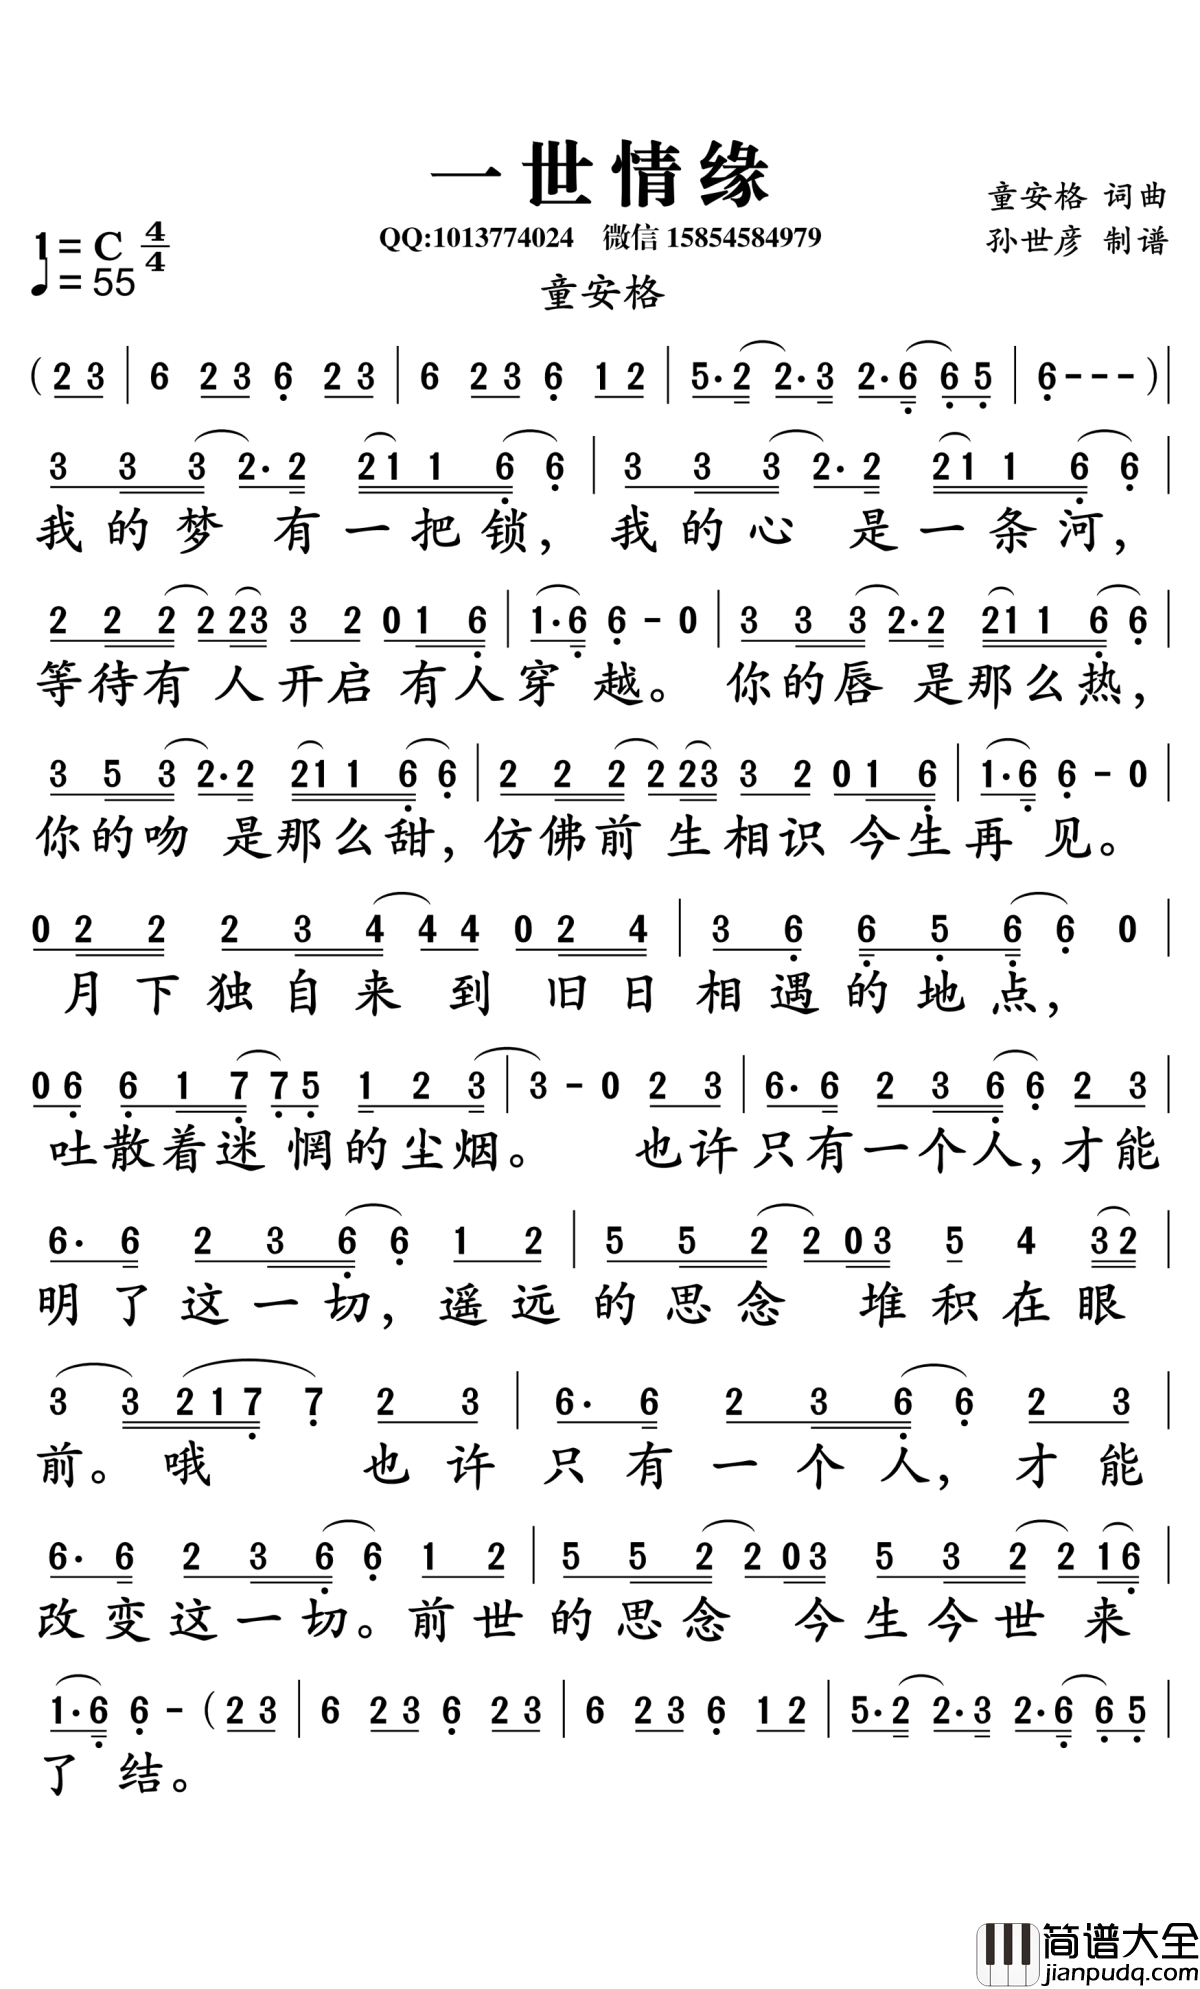 一世情缘
童安格 词曲
1=C 4/4
QQ:1013774024 微信 15854584979
孙世彦 制谱
♩=55
童安格
(23 | 6 236 23 | 6 236 12 | 5·2 2·3 2·6 65 | 6--- )|
3 3 3 2·2 211 6 6 | 3 3 3 2·2 211 6 6 |
我的梦 有一把锁, 我的心 是一条河,
2 2 2 2 23 3 2 01 6 | 1·6 6 - 0 | 3 3 3 2·2 211 6 6 |
等待有 人开启 有人穿 越。 你的唇 是那么热,
3 5 3 2·2 211 6 6 | 2 2 2 2 23 3 2 01 6 | 1·6 6 - 0 |
你的吻 是那么甜, 仿佛前 生相识 今生再 见。
0 2 2 2 3 4 4 4 0 2 4 | 3 6 6 5 6 6 0 |
月下独自来 到 旧日相遇的地点,
0 6 6 1 7 7 5 1 2 3 | 3 - 0 2 3 | 6· 6 2 3 6 6 2 3 |
吐散着迷 惘的尘烟。 也许只有一个人, 才能
6· 6 2 3 6 6 1 2 | 5 5 2 2 0 3 5 4 3 2 |
明了这一切, 遥远的思念 堆积在眼
3 3 2 1 7 7 2 3 | 6· 6 2 3 6 6 2 3 |
前。 哦 也许只有一个人, 才能
6· 6 2 3 6 6 1 2 | 5 5 2 2 0 3 5 3 2 2 1 6 |
改变这一切。 前世的思念 今生今世来
1·6 6 - (23 | 6 236 23 | 6 236 12 | 5·2 2·3 2·6 65 |
了 结。
简谱大全
jianpudq.com